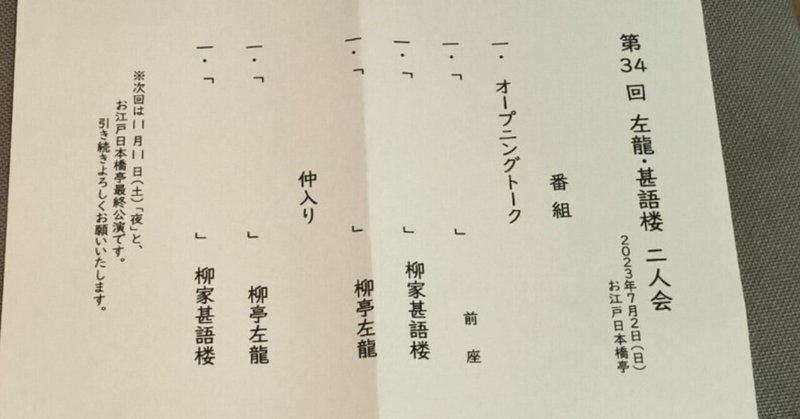 第34回 左龍・甚語楼 二人会
2023年7月2日(日)
お江戸日本橋亭
番組
一・ オープニングトーク
一・「 」 前座
一・「 」 柳家甚語楼
一・「 」 柳亭左龍
仲入り
一・「 」 柳亭左龍
一・「 」 柳家甚語楼
※次回は11月11日(土)「夜」と、
お江戸日本橋亭最終公演です。
引き続きよろしくお願いいたします。